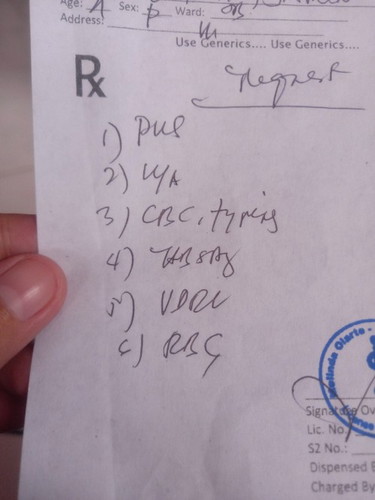 Age: Sex: Ward: OB
Address:
Use Generics.... Use Generics....
Rx
Request
1) PUS
2) U/A
3) CBC, typing
4) HBsAg
5) VDRL
6) RBS
Melinda Olarte
Signature Ov
Lic. No.
S2 No.:
Dispensed B
Charged By